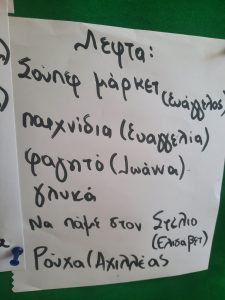 Λεφτα:
Σούπερ μάρκετ
(Ευάγγελος)
παιχνίδια (Ευαγγελία)
φαγητό (Ιωάννα)
γλυκά
Να πάμε στον Στέλιο
(Ελισάβετ)
Ρούχα (Αχιλλέας